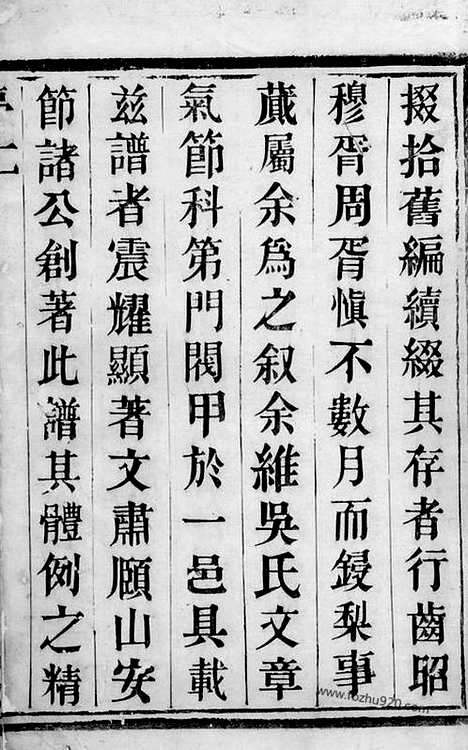 掇拾舊編續綴其存者行齒昭
穆胥周胥慎不數月而鋟梨事
蕆屬余為之叙余維吳氏文章
氣節科第門閥甲於一邑具載
兹譜者震耀顯著文肅頤山安
節諸公創著此譜其體例之精
www.fozhu920.com